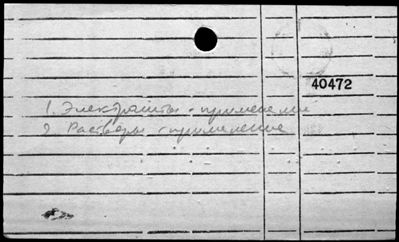 40472
1. Электролиты - применение
2. Растворы - применение